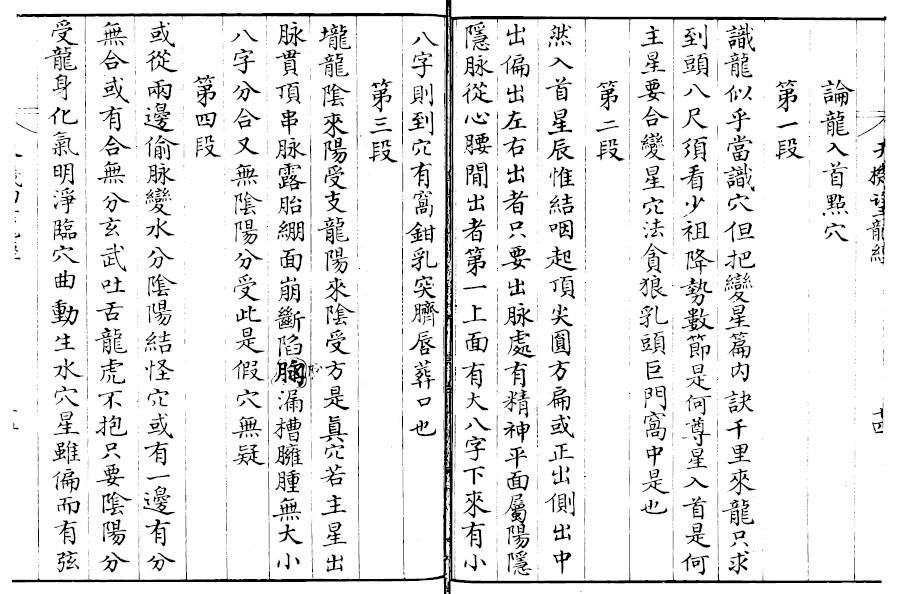 論龍入首點穴
第一段
識龍似乎當識穴但把變星篇内訣千里來龍只求
到頭八尺須看少祖降勢數節是何尊星入首是何
主星要合變星穴法貪狼乳頭巨門窩中是也
第二段
然入首星辰惟結咽起頂尖圓方扁或正出側出中
出偏出左右出者只要出脉處有精神平面屬陽隱
隱脉從心腰間出者第一上面有大八字下來有小
八字則到穴有窩鉗乳突臍唇葬口也
第三段
壠龍陰來陽受支龍陽來陰受方是真穴若主星出
脉貫頂串脉露胎繃面崩斷陷漏槽臃腫無大小
八字分合又無陰陽分受此是假穴無疑
第四段
或從兩邊偷脉變水分陰陽結怪穴或有一邊有分
無合或有合無分玄武吐舌龍虎不抱只要陰陽分
受龍身化氣明淨臨穴曲動生水穴星雖偏而有弦